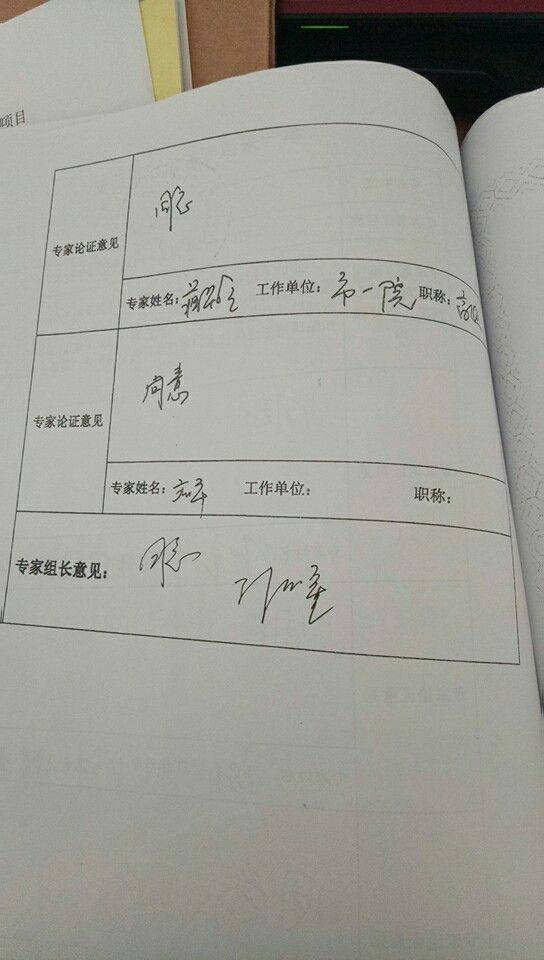 项目
专家论证意见
同意
专家姓名: 工作单位: 市一院 职称:
专家论证意见
同意
专家姓名: 工作单位: 职称:
专家组长意见: 同意